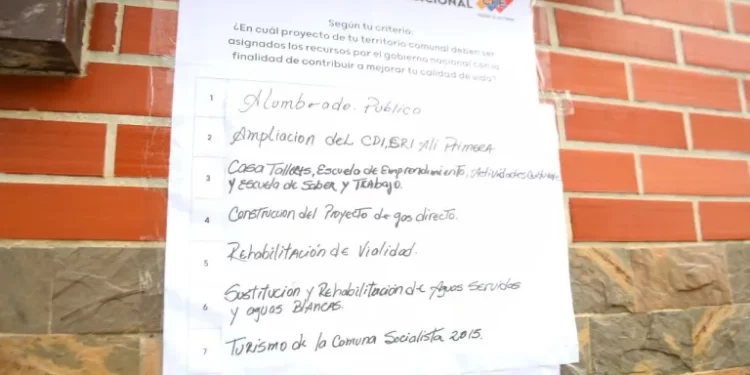 NACIONAL
Según tu criterio:
¿En cuál proyecto de tu territorio comunal deben ser
asignados los recursos por el gobierno nacional con la
finalidad de contribuir a mejorar tu calidad de vida?
1 Alombrado. Publico
2 Ampliacion del CDI, SRI Ali Primera
3 Casa Talleres, Escuela de Emprendimiento, Actividades
y Escuela de Saber y Trabajo.
4 Construccion del Proyecto de gas directo.
5 Rehabilitación de Vialidad.
6 Sustitucion y Rehabilitación de Aguas Servidas
y aguas Blancas.
7 Turismo de la Comuna Socialista 2015.